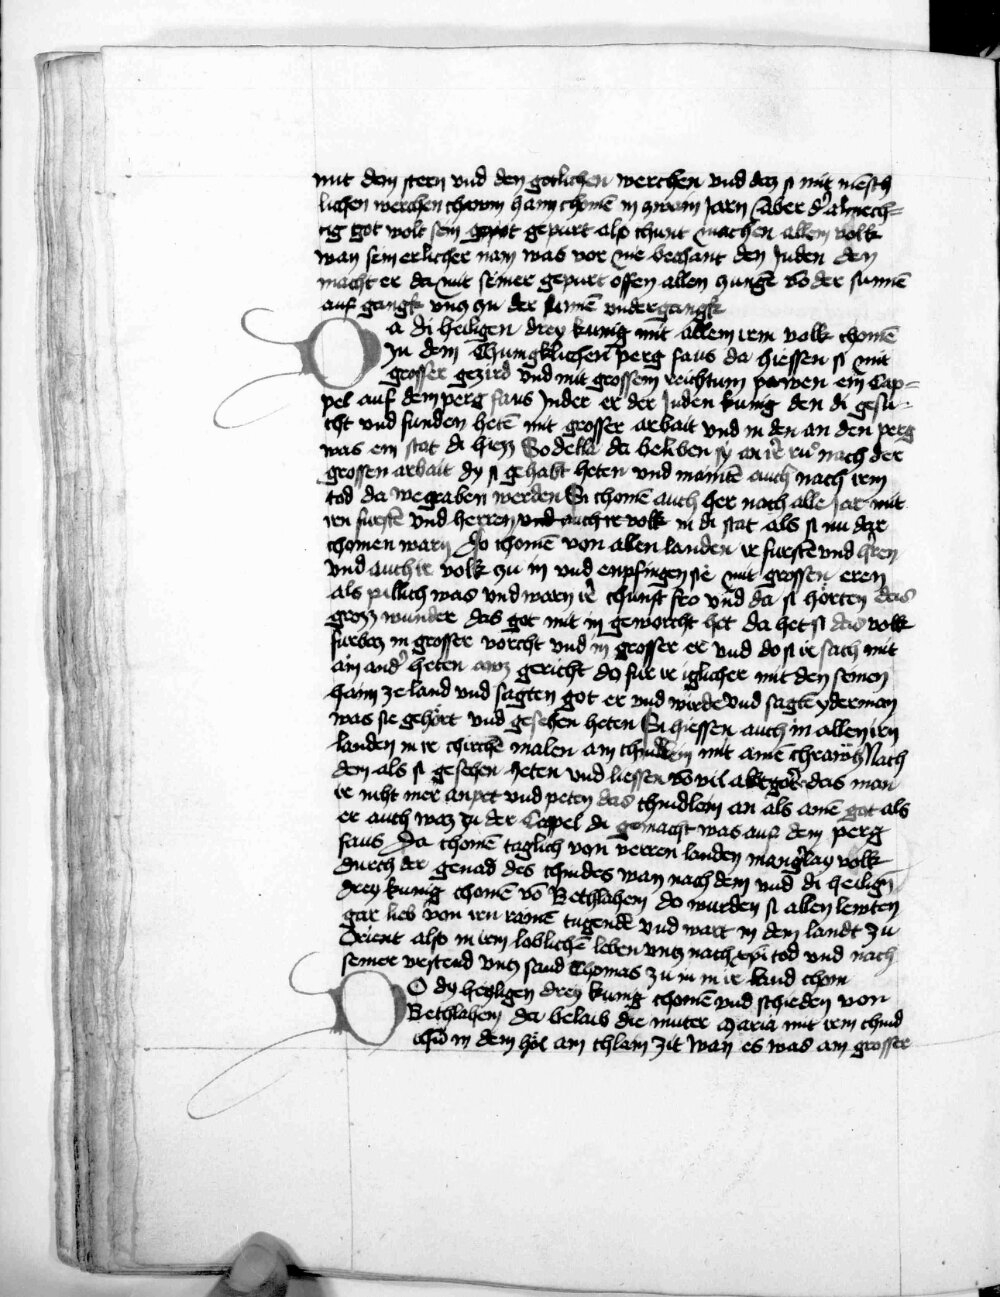 mit dem stern vnd den gotlichen werchen vnd daz si mit mensch
lichen werchen chawm ham chomē in zwain Jarn Aber d' almech=
tig got wolt sein gepurt also chunt machen allem volk
wan sein erlicher nam was vor nie bechant den Juden den
macht er da mit seiner gepurt offen allen zungē vō der sunnē
auf gangk vntz zu der sunnē vndergangk
Da di heiligen drey kunig mit allem irm volk chomē
zu dem Chunigklichen perg faus da hiessen si mit
grosser gezird vnd mit grossem reichtum pawen ein Cap=
pel auf dem perg faus Jnder er der Juden kunig den di gesu=
cht vnd funden hetē mit grosser arbait vnd in den an den perg
was ein stat di hiezz Sodella da beliben sy ir rů nach der
grossen arbait dy si gehabt heten vnd maintē auch nach irm
tod da wegraben werden Si chomē auch her nach alle Jar mit
irn furstē vnd herren vnd auch ir volk in di stat als si nu dar
chomen warn Do chomē von allen landen ir furstē vnd h'ren
vnd auch ir volk zu in vnd enpfingen sie mit grossen eren
als pillich was vnd warn ir chunft fro vnd da si hörten das
grozz wunder das got mit in geworcht het da het si das volk
furbaz in grosser vorcht vnd in grosser er vnd do si ir sach mit
ain and' heten gericht do fur ir iglicher mit den seinen
haim ze land vnd sagten got er vnd wirde vnd sagtē yderman
was sie gehört vnd gesehen heten Si hiessen auch in allen irn
landen in ir chirchē malen ain chindlein mit ainē chrawtz Nach
dem als si gesehen heten vnd liessen vō vil abtgöt' das man
ir nicht mer anpet vnd peten das chindlein an als ainē got als
er auch waz zu der Cappel di gemacht was auf dem perg
faus Da chomē taglich von verren landen mang'lay volk
durch der genad des chindes wan nach dem vnd di heiligē
drey kunig chomē vō Bethlahem do wurden si allen lewten
gar lieb von irn rainē tugendē vnd wart in dem landt zu
Orient also in irm loblichē leben vntz nach xpi tod vnd nach
seiner vrstend vntz sand Thomas zu in in ir land chom
Do dy heyligen drey kunig chomē vnd schieden von
Bethlahem da belaib die muter Maria mit irm chind
ihū in dem höl ain chlain zit wan es was ain grosser